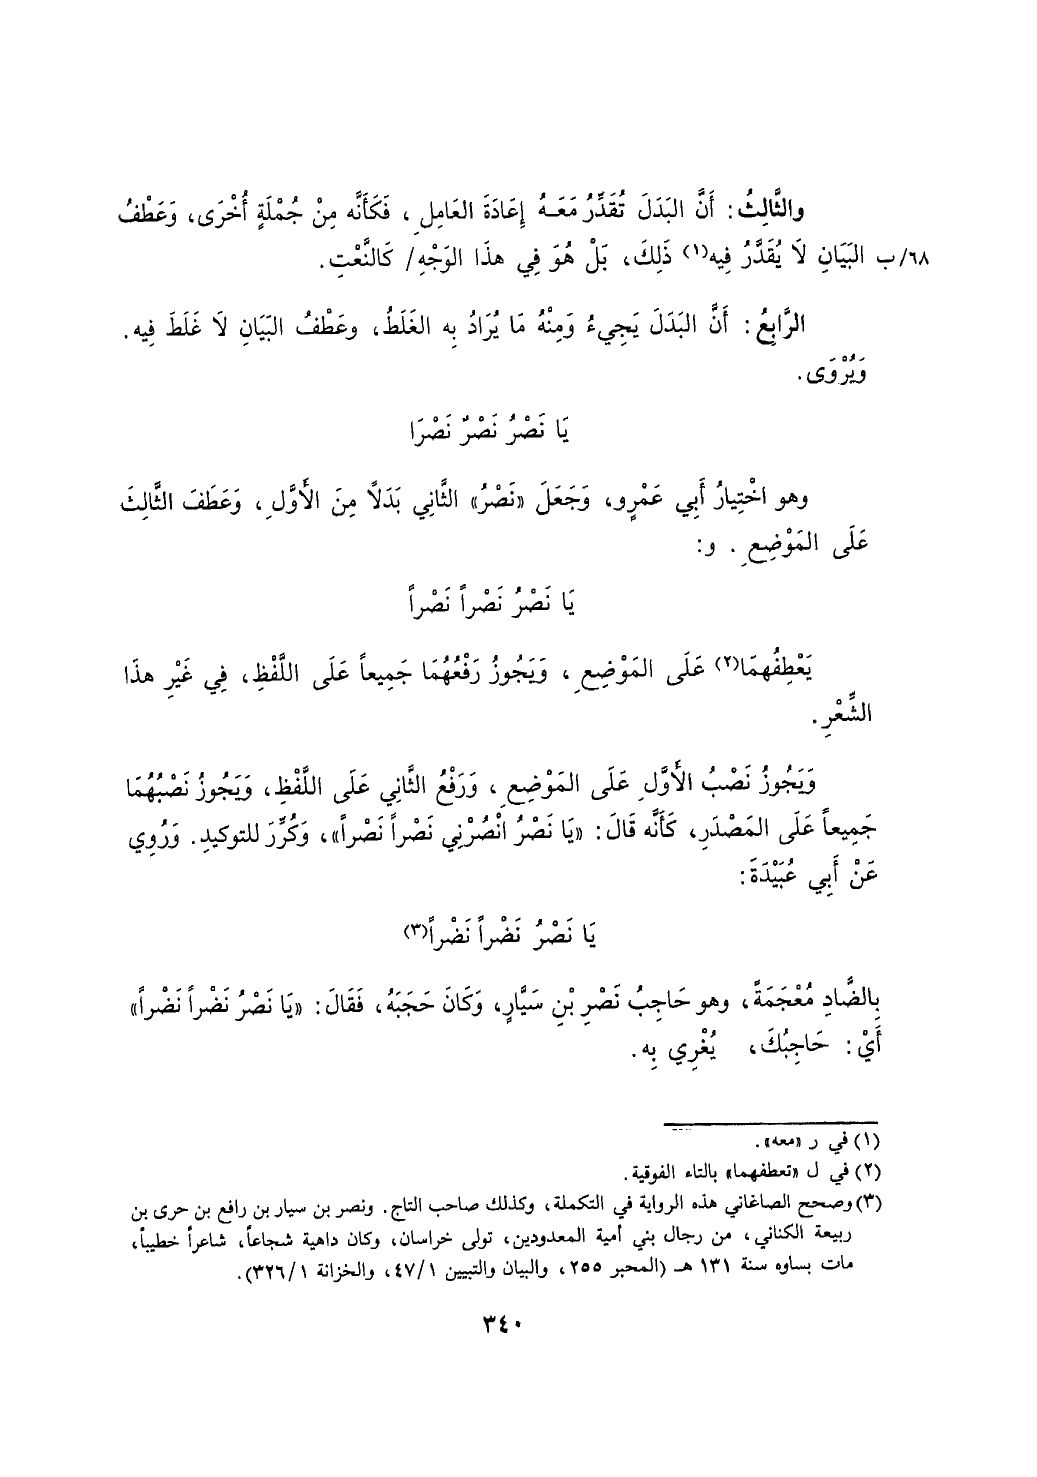 والثَّالِثُ: أَنَّ البَدَلَ تُقَدِّرُ مَعَهُ إِعَادَةَ العَامِلِ، فَكَأَنَّه مِنْ جُمْلَةٍ أُخْرَى، وَعَطْفُ
٦٨/ب البَيَانِ لَا يُقَدَّرُ فِيه(١) ذَلِكَ، بَلْ هُوَ فِي هذَا الوَجْهِ/ كَالنَّعْتِ.
الرَّابِعُ: أَنَّ البَدَلَ يَجِيءُ وَمِنْهُ مَا يُرَادُ بِه الغَلَطُ، وعَطْفُ البَيَانِ لَا غَلَطَ فِيه.
وَيُرْوَى.
يَا نَصْرُ نَصْرٌ نَصْرَا
وهو اخْتِيارُ أَبِي عَمْرٍو، وَجَعَلَ «نَصْرُ» الثَّانِي بَدَلًا مِنَ الأَوَّلِ، وَعَطَفَ الثَّالِثَ
عَلَى المَوْضِعِ. و:
يَا نَصْرُ نَصْراً نَصْراً
يَعْطِفُهمَا(٢) عَلَى المَوْضِعِ، وَيَجُوزُ رَفْعُهُمَا جَمِيعاً عَلَى اللَّفْظِ، فِي غَيْرِ هذَا
الشِّعْرِ.
وَيَجُوزُ نَصْبُ الأَوَّلِ عَلَى المَوْضِعِ، وَرَفْعُ الثَّانِي عَلَى اللَّفْظِ، وَيَجُوزُ نَصْبُهُمَا
جَمِيعاً عَلَى المَصْدَرِ، كَأَنَّه قَالَ: «يَا نَصْرُ انْصُرْنِي نَصْراً نَصْراً»، وَكُرِّرَ للتوكيدِ. وَرُوِي
عَنْ أَبِي عُبَيْدَةَ:
يَا نَصْرُ نَضْراً نَضْراً(٣)
بِالضَّادِ مُعْجَمَةً، وهو حَاجِبُ نَصْرِ بْنِ سَيَّارٍ، وَكَانَ حَجَبَهُ، فَقَالَ: «يَا نَصْرُ نَضْراً نَضْراً»
أَيْ: حَاجِبُكَ، يُغْرِي بِه.
(١) في ر «معه».
(٢) في ل «تعطفهما» بالتاء الفوقية.
(٣) وصحح الصاغاني هذه الرواية في التكملة، وكذلك صاحب التاج. ونصر بن سيار بن رافع بن حرى بن
ربيعة الكناني، من رجال بني أمية المعدودين، تولى خراسان، وكان داهية شجاعاً، شاعراً خطيباً،
مات بساوه سنة ١٣١ هـ (المحبر ٢٥٥، والبيان والتبيين ٤٧/١، والخزانة ٣٢٦/١).
٣٤٠